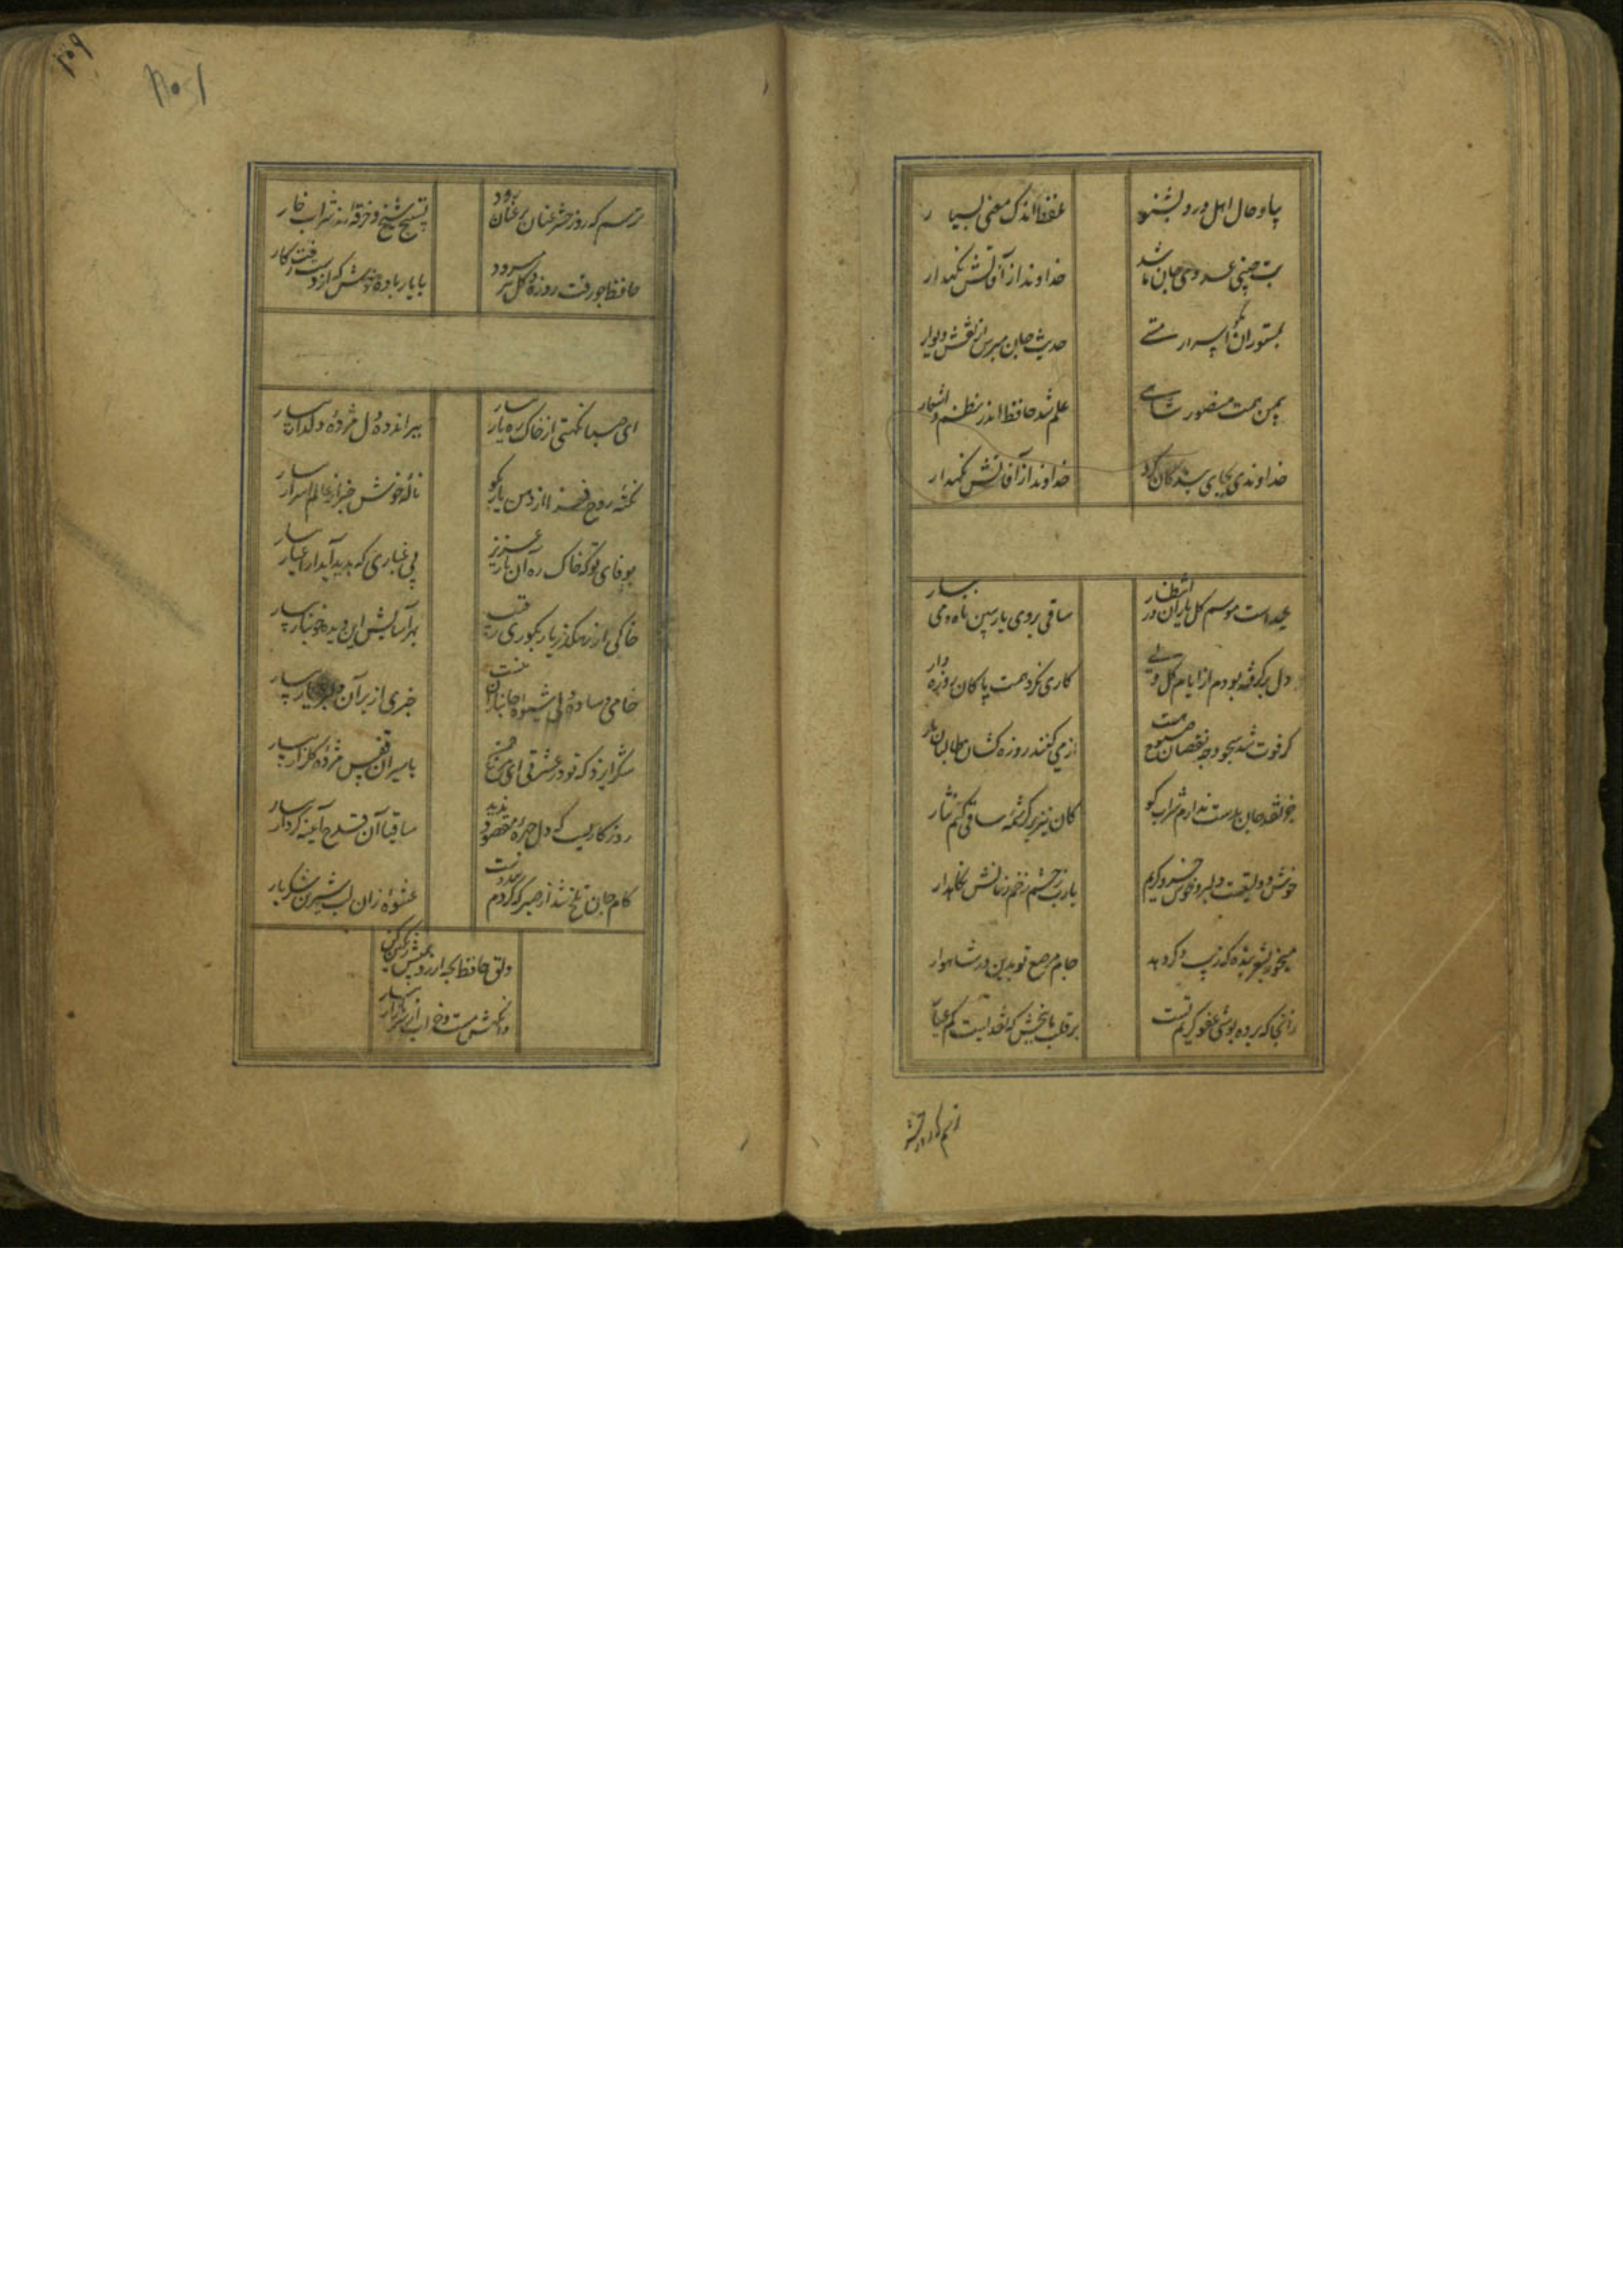 بیا و حال اهل درد بشنو
بلفظ اندک معنی بسیار
بت چینی عدوی جان ما شد
خداوندا از آفاتش نگهدار
بمستوران مگو اسرار مستی
حدیث جان مپرس از نقش دیوار
بیمن همت منصور شاهی
علم شد حافظ اندر نظم و اشعار
خداوندی بجای بندگان کرد
خداوندا از آفاتش نگهدار
عید است موسم گل یاران در انتظار
ساقی بروی یار ببین ماه و می بیار
دل برگرفته بودم از ایام گل ولی
کاری نکرد همت پاکان روزه دار
گر فوت شد سحور چه نقصان صبوح هست
از می کنند روزه گشا طالبان یار
جز نقد جان بدست ندارم شراب کو
کان نیز بر کرشمه ساقی کنم نثار
خوش دولتیست دلبر و خوش خسرو کریم
یارب ز چشم زخم زمانش نگاهدار
میخور بشعر بنده که زیب دگر دهد
جام مرصع تو بدین در شاهوار
زانجا که پرده پوشی عفو کریم تست
بر قلب ما ببخش که نقدیست کم عیار
ترسم که روز حشر
۱۰۹
ترسم که روز حشر عنان بر عنان رود
تسبیح شیخ و خرقه رند شراب خوار
حافظ چو رفت روزه و گل میرود
بایار باده نوش که از دست رفت کار
ای صبا نکهتی از خاک ره یار بیار
ببر اندوه دل و مژده دلدار بیار
نکته روح فزا از دهن یار بگو
نامه خوش خبر از عالم اسرار بیار
بوفای تو که خاک ره آن یار عزیز
بی غباری که پدید آید از اغیار بیار
خاکی از رهگذر یار بکوری رقیب
بهر آسایش این دیده خونبار بیار
خامی و ساده دلی شیوه جانبازان نیست
خبری از بر آن دلبر عیار بیار
شکر ایزد که تو در عشرتی ای مرغ چمن
باسیران قفس مژده گلزار بیار
روزگاریست که دل چهره مقصود ندید
ساقیا آن قدح آینه کردار بیار
کام جان تلخ شد از صبر که کردم بی دوست
عشوه زان لب شیرین شکربار بیار
دلق حافظ بچه ارزد بمیش رنگین کن
وانگهش مست و خراب از سر بازار بیار